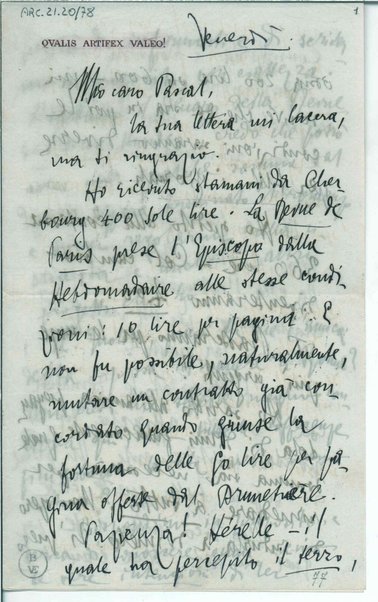 ARC.21.20/78
1
QVALIS ARTIFEX VALEO!
Venerdì
Mio caro Pascal,
la tua lettera mi lacera,
ma ti ringrazio.
Ho ricevuto stamani da Cher
bourg 400 sole lire. La Revue de
Paris prese l'Episcopo dalla
Hebdomadaire alle stesse condi
zioni: 10 lire per pagina. E
non fu possibile, naturalmente,
mutare un contratto già con
cordato quando giunse la
fortuna delle 50 lire per pa
gina offerte dal Brunetière.
Pazienza! Herelle – il
quale ha percepito il terzo,
B
VE
77